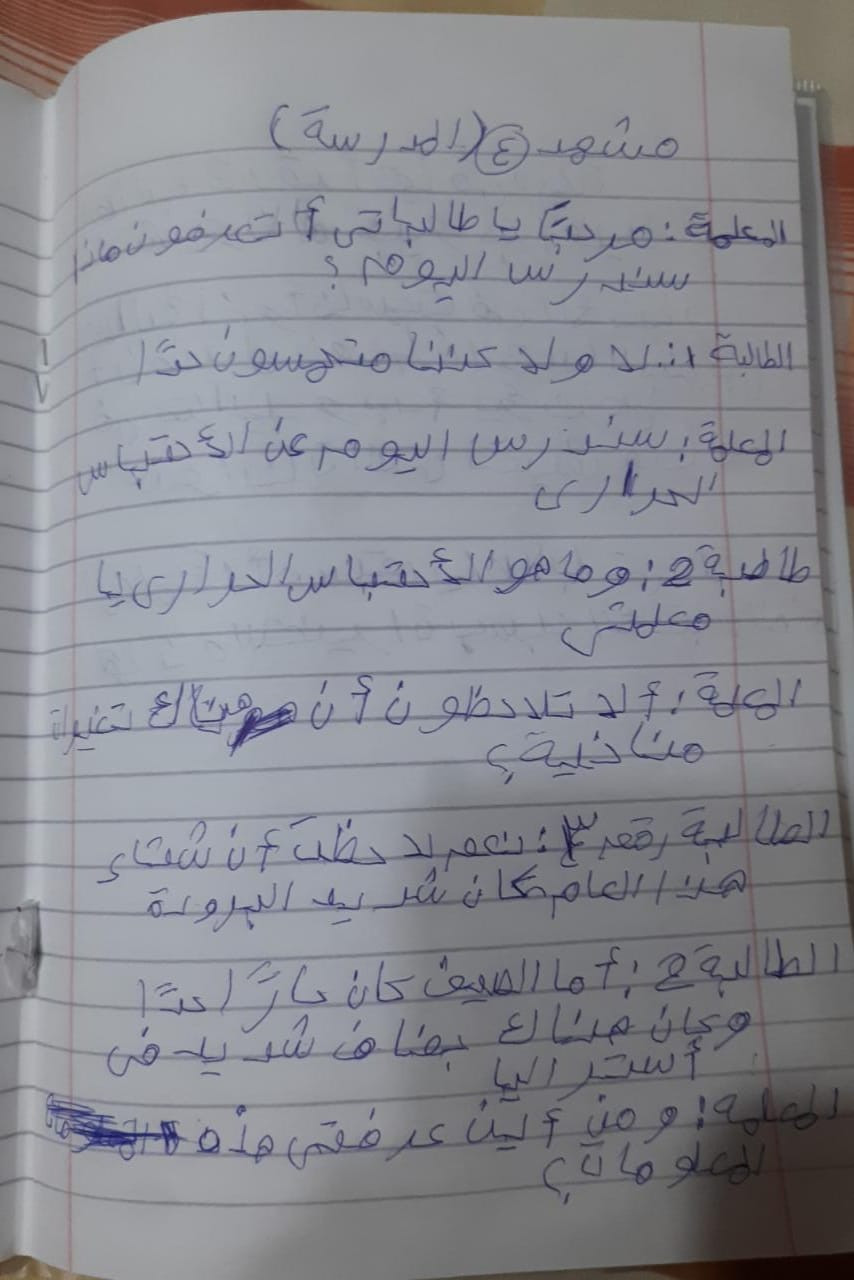 مشهد ④ (المدرسة)
المعلمة: مرحبًا يا طالباتي أتعرفون ماذا
سندرس اليوم؟
الطالبة 1: لا ولا كننا متحمسون جدًا
المعلمة: سندرس اليوم عن الأحتباس
الحراري
طالبة 2: وما هو الأحتباس الحراري يا
معلمتي
المعلمة: ألا تلاحظون أن هناك تغيرات
مناخية؟
الطالبة رقم ٣: نعم لاحظت أن شتاء
هذا العام كان شديد البرودة
الطالبة 2: أما الصيف كان حارًا جدًا
وكان هناك جفاف شديد في
أستراليا
المعلمة: ومن أين عرفتي هذه
المعلومات؟